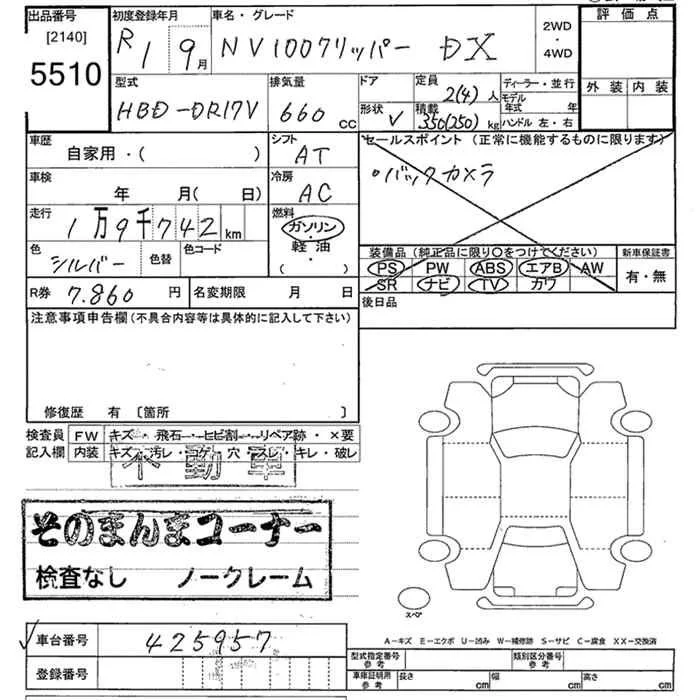 出品番号 初度登録年月 車名・グレード 評価点
[2140] R 1 9月 NV100クリッパー DX 2WD・4WD
5510 外装 内装
型式 排気量 ドア 定員 ディーラー・並行
HBD-DR17V 660cc 2(4)人 モデル年式 年
形状 V 積載 350(250)kg ハンドル 左・右
車歴 シフト セールスポイント (正常に機能するものに限ります)
自家用・( ) AT
・バックカメラ
車検 冷房
年 月(日) AC
走行 燃料
1万9千742km ガソリン・軽油
( ・ )
色 シルバー 色替 色コード
装備品(純正品に限り〇をつけてください) 新車保証書
PS PW ABS エアB AW 有・無
SR ナビ TV カワ
R券 7.860円 名変期限 月 日
後日品
注意事項申告欄(不具合内容等は具体的に記入して下さい)
修復歴 有 [箇所 ]
検査員 FW キズ・飛石・ヒビ割・リペア跡・×要
記入欄 内装 キズ・汚レ・コゲ・穴・スレ・キレ・破レ
不動車
そのまんまコーナー
検査なし ノークレーム
スペア
A−キズ E−エクボ U−凹み W−補修跡 S−サビ C−腐食 XX−交換済
車台番号 425957
登録番号
型式指定番号 参考 類別区分番号 参考
車庫証明用 参考 長さ cm 幅 cm 高さ cm